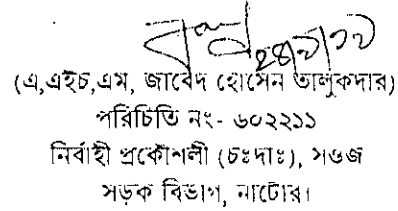 (এ,এইচ,এম, জাবেদ হোসেন তালুকদার)
পরিচিতি নং- ৬০২২১১
নির্বাহী প্রকৌশলী (চঃদাঃ), সওজ
সড়ক বিভাগ, নাটোর।